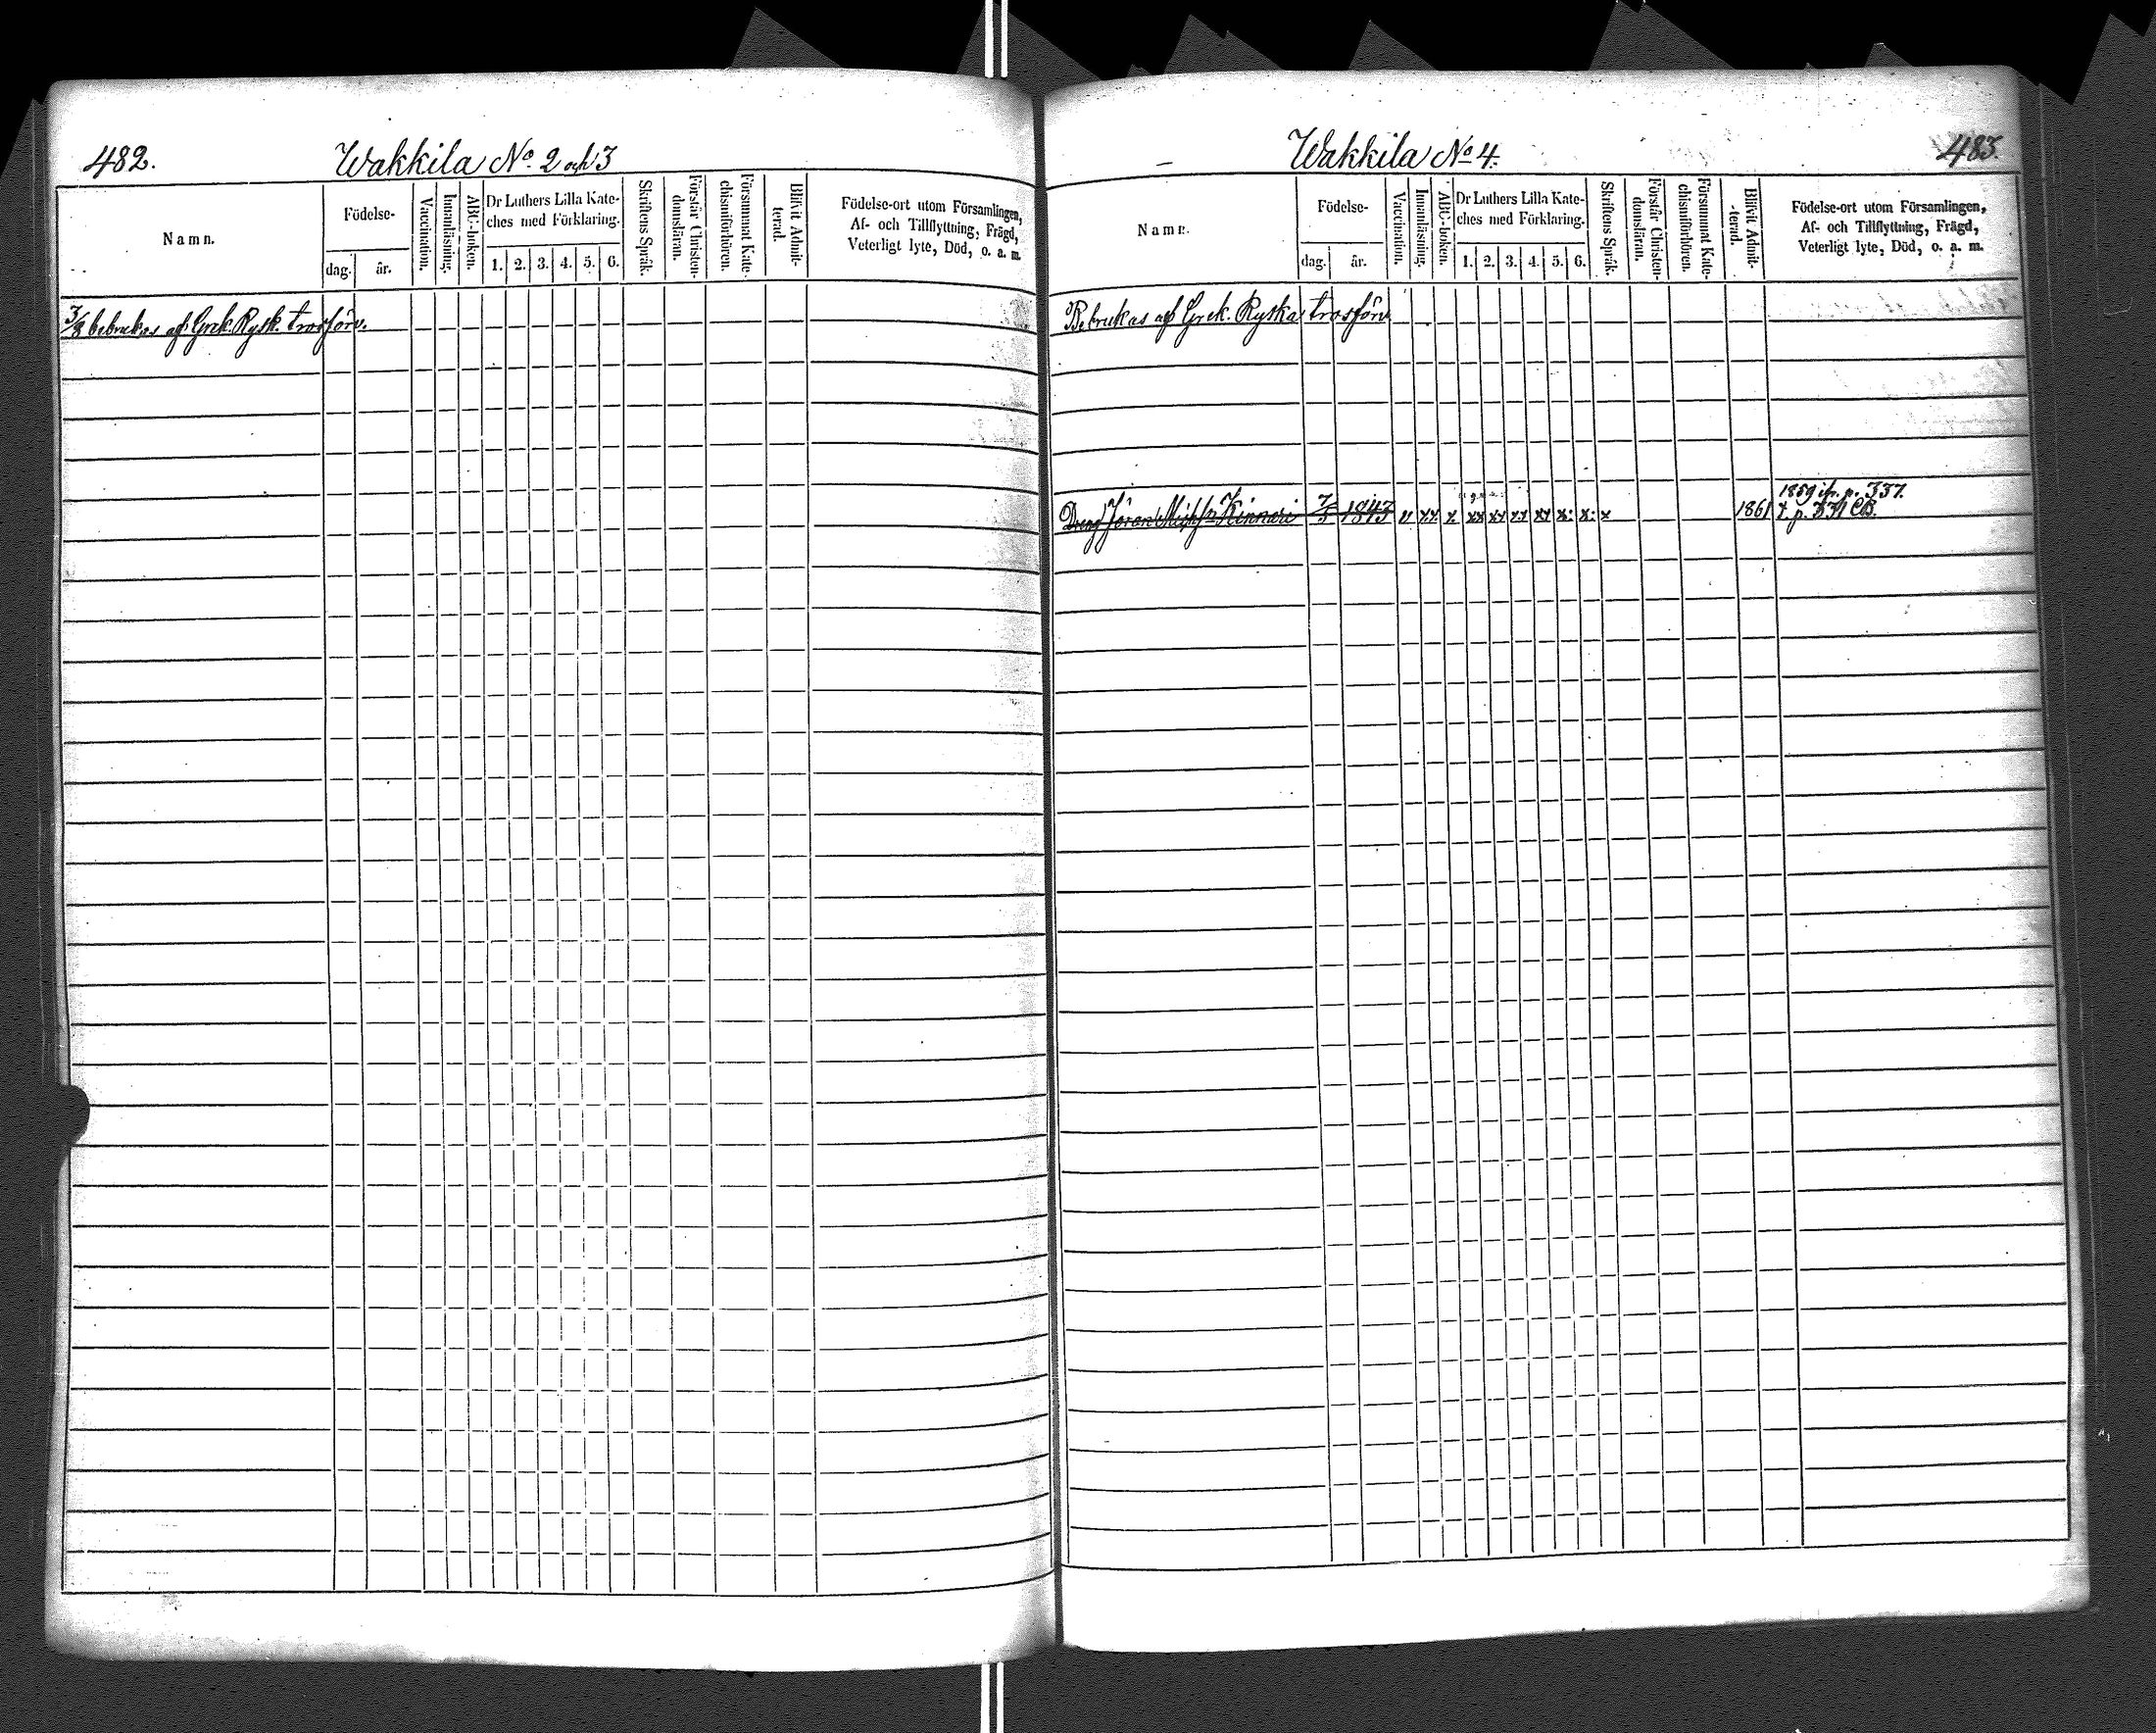 482.
Wakkila No. 2 och 3
Namn.
Födelse-
dag. år.
Vaccination.
Innanläsning.
ABC-boken.
Dr Luthers Lilla Kate-
ches med Förklaring.
1. 2. 3. 4. 5. 6.
Skriftens Språk.
Förstår Christen-
domsläran.
Försummat Kate-
chismiförhören.
Blifvit Admit-
terad.
Födelse-ort utom Församlingen,
Af- och Tillflyttning, Frägd,
Veterligt lyte, Död, o. a. m.
3/8 bebrukas af Grek. Rysk. trosförv.
Wakkila No 4.
483.
Namn.
Födelse-
dag. år.
Vaccination.
Innanläsning.
ABC-boken.
Dr Luthers Lilla Kate-
ches med Förklaring.
1. 2. 3. 4. 5. 6.
Skriftens Språk.
Förstår Christen-
domsläran.
Försummat Kate-
chismiförhören.
Blifvit Admit-
-terad.
Födelse-ort utom Församlingen,
Af- och Tillflyttning, Frägd,
Veterligt lyte, Död, o. a. m.
Bebrukas af Grek. Ryska trosförv.
1859 ifr. p. 337.
Dreng Jöran Mich:sn Kinnari 7/5 1843 v xx x xx xx xx xx x: x: x 1861 t. p. 331 CB.